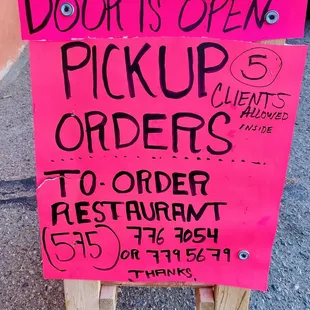 DOOR IS OPEN
PICKUP 5
CLIENTS
ALLOWED
ORDERS INSIDE
TO-ORDER
RESTAURANT
(575) 776 7054
OR 779 5679
THANKS.